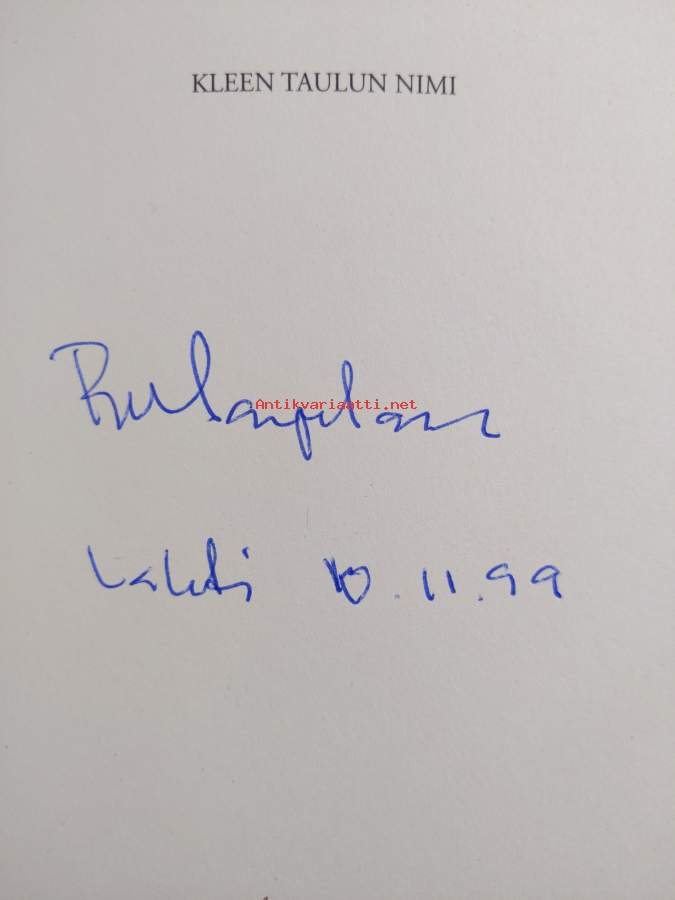 KLEEN TAULUN NIMI
Antikvariaatti.net
Lahti 10.11.99